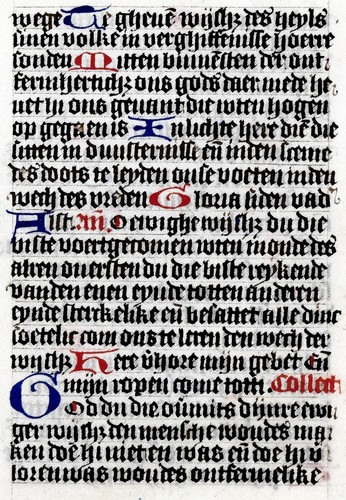 wege Te gheuē wijsħꝫ des heyls
sinen volke in verghiffenisse hoerre
sonden Mitten binnensten der ont
fermhertichꝫ ons gods daer mede he
uet hi ons geuant die wten hogen
op gegaen is In lichte here diē die
sitten in duusternisse eñ inden sceme
des doots te leyden onse voeten inden
wech des vreden Gloria si den vad
Alst. An̄. O ewighe wijsħꝫ du die
biste voertgecomen wten monde des
alren ouersten du die biste reykende
vanden enen eynde totten anderen
eynde sterckelike eñ besattet alle dinc
soetelic com ons te leren den wech der
wijsħꝫ Here v̄hore mijn gebet Eñ
mijn ropen come totti. Collect
God du die oūmits dijnre ewi
ger wijsħꝫ den mensche woudes ma
ken doe hi niet en was eñ doe hi v
loren was woudes ontfermelike